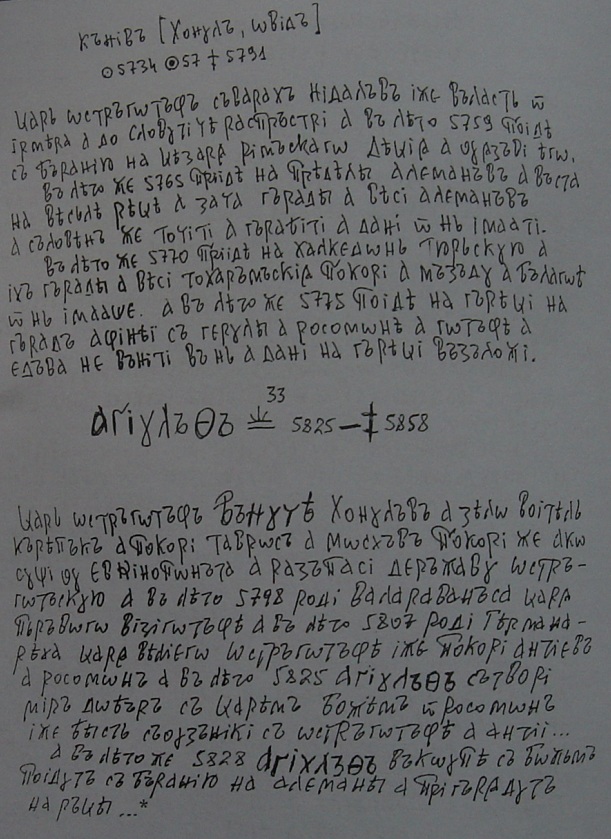 кънівъ [Хонулъ, ѡвідъ]
⊙5734 ◉57 ‡ 5791
царь ѡстръгѡтъфъ съварахъ нідалъвъ іже въласть ѿ
ірмѣра а до словутіуѣ распръстрі а въ лѣто 5759 поідѣ
съ бъранію на цѣзара рімъскагѡ деціа а оуразъві егѡ.
въ лѣто же 5765 пріідѣ на прѣдѣлы алеманъвъ а въста
на вьсѣлѣ рѣцѣ а зата гърады а вѣсі алеманъвъ
а съловѣнъ же точіті а гърабіті а дані ѿ нь імааті.
въ лѣто же 5770 пріідѣ на халкедѡнь тюрьскую а
іхъ гърады а вѣсі тохаръмъскіа покорі а мъзъду а бълагѡѣ
ѿ нь імааше. а въ лѣто же 5775 поідѣ на гърѣці на
гърадъ афінѣі съ герулы а росомѡнѣ а гѡтъфѣ а
едъва не въніті въ нь а дані на гърѣці възъложі.
33
агіулъѳъ 5825 — ‡ 5858
царь ѡстръгѡтъфъ вънуѵѣ Хонулъвъ а зѣлѡ воітѣль
кърѣпъкъ а покорі таврѡсъ а мѡсхъвъ покорі же акѡ
сущі оу евкіпопѡнъта а разъпасі державу ѡстръ-
гѡтъскую а въ лѣто 5798 роді валараванъса цара
пъръвѡгѡ візігѡтъфѣ а въ лѣто 5807 роді Германа-
рѣха цара вѣліегѡ ѡстръгѡтъфѣ іже покорі антіевъ
а росомѡнъ а въ лѣто 5825 агіулъѳъ сътворі
міръ дѡбъръ съ царѣмъ божѣмъ ѿ росомѡнъ
іже бысть съоузънікі съ ѡстръгѡтъфѣ а антіі...
а въ лѣто же 5828 агіулъѳъ въкѡупѣ съ бѡжьмъ
поідутъ съ бъранію на алеманы а прігърадутъ
на ръцы...*